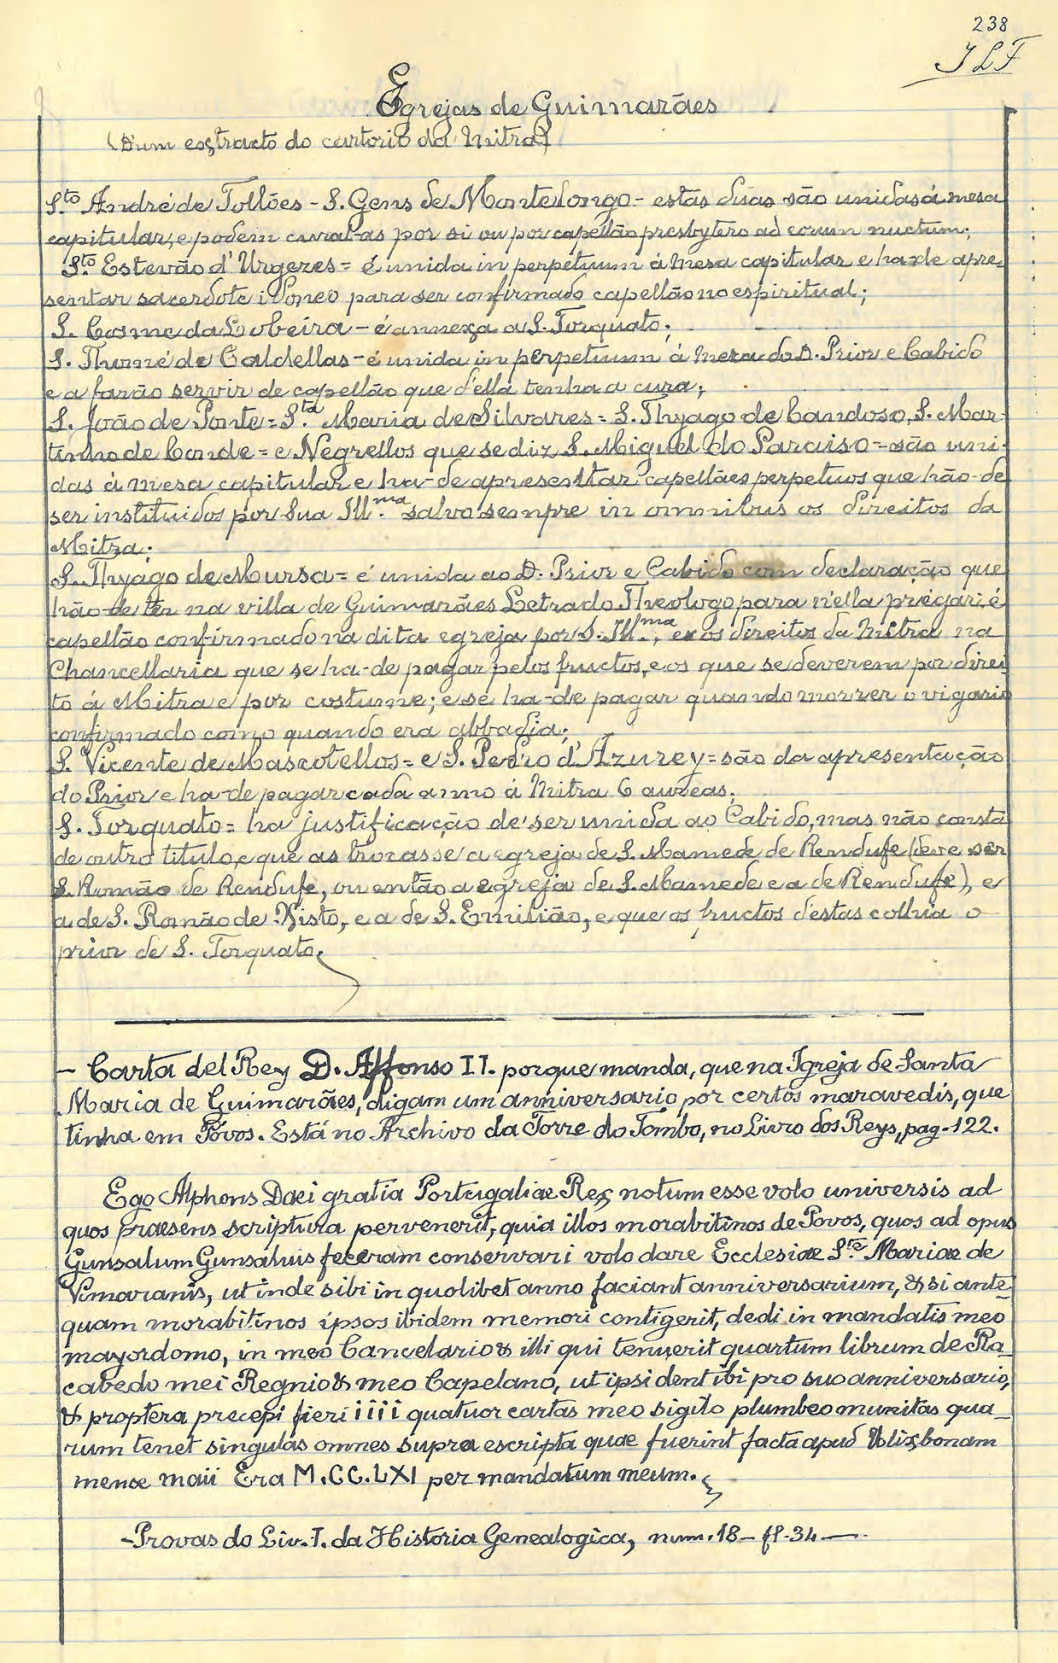 238
JLF
Egrejas de Guimarães
(D'um extracto do cartorio da Mitra)
S.to André de Tollões - S. Gens de Montelongo - estas duas são unidas á mesa
capitular, e podem cural-as por si ou por capellão presbytero ad eorum nuctum;
S.to Estevão d'Urgezes = é unida in perpetuum á Mesa capitular e ha-de apre-
sentar sacerdote idoneo para ser confirmado capellão no espiritual;
S. Cosme da Lobeira - é annexa a S. Torquato;
S. Thomé de Caldellas - é unida in perpetuum á Meza do D. Prior e Cabido
e a farão servir de capellão que d'ella tenha a cura;
S. João de Ponte = S.ta Maria de Silvares = S. Thyago de Candoso, S. Mar-
tinho de Conde = e Negrellos que se diz S. Miguel do Paraiso = são uni-
das á mesa capitular e ha-de apresentar capellães perpetuos que hão-de
ser instituidos por Sua Ill.ma salvo sempre in omnibus os direitos da
Mitra;
S. Thyago de Mursa = é unida ao D. Prior e Cabido com declaração que
hão-de ter na villa de Guimarães Letrado Theologo para n'ella prégar, é
capellão confirmado na dita egreja por S. Ill.ma, e os direitos da Mitra na
Chancellaria que se ha-de pagar pelos fructos, e os que se deverem por direi
to á Mitra e por costume; e se ha-de pagar quando morrer o vigario
confirmado como quando era abbadia;
S. Vicente de Mascotellos = e S. Pedro d'Azurey = são da apresentação
do Prior e ha-de pagar cada anno á Mitra 6 aureas;
S. Torquato = ha justificação de ser unida ao Cabido, mas não consta
de outro titulo, e que as trocasse a egreja de S. Mamede de Rendufe (deve ser
S. Romão de Rendufe, ou então a egreja de S. Mamede e a de Rendufe), e
a de S. Romão de Visto, e a de S. Emilião, e que os fructos destas colhia o
prior de S. Torquato.
- Carta del Rey D. Affonso II. porque manda, que na Igreja de Santa
Maria de Guimarães, digam um anniversario, por certos maravedis, que
tinha em Póvos. Está no Archivo da Torre do Tombo, no Livro dos Reys, pag. 122.
Ego Alphons Daei gratia Portugaliae Rex notum esse volo universis ad
quos praesens scriptura pervenerit, quia illos morabitinos de Povos, quos ad opus
Gunsalum Gunsaluis feceram conservari volo dare Ecclesiae S.te Mariae de
Vimaranis, ut inde sibi in quolibet anno faciant anniversarium, & si ante-
quam morabitinos ipsos ibidem memori contigerit, dedi in mandatis meo
mayordomo, in meo Cancelario & illi qui tenuerit quartum librum de Ra_
cabedo mei Regnio & meo Capelano, ut ipsi dent ibi pro suo anniversario,
& proptera precepi fieri iiii quatuor cartas meo sigilo plumbeo munitas qua_
rum tenet singulas omnes supra escripta quae fuerint facta apud Ulixbonam
mense maii Era M.CC.LXI per mandatum meum.
- Provas do Liv. I. da Historia Genealogica, num. 18 - fl. 34 -